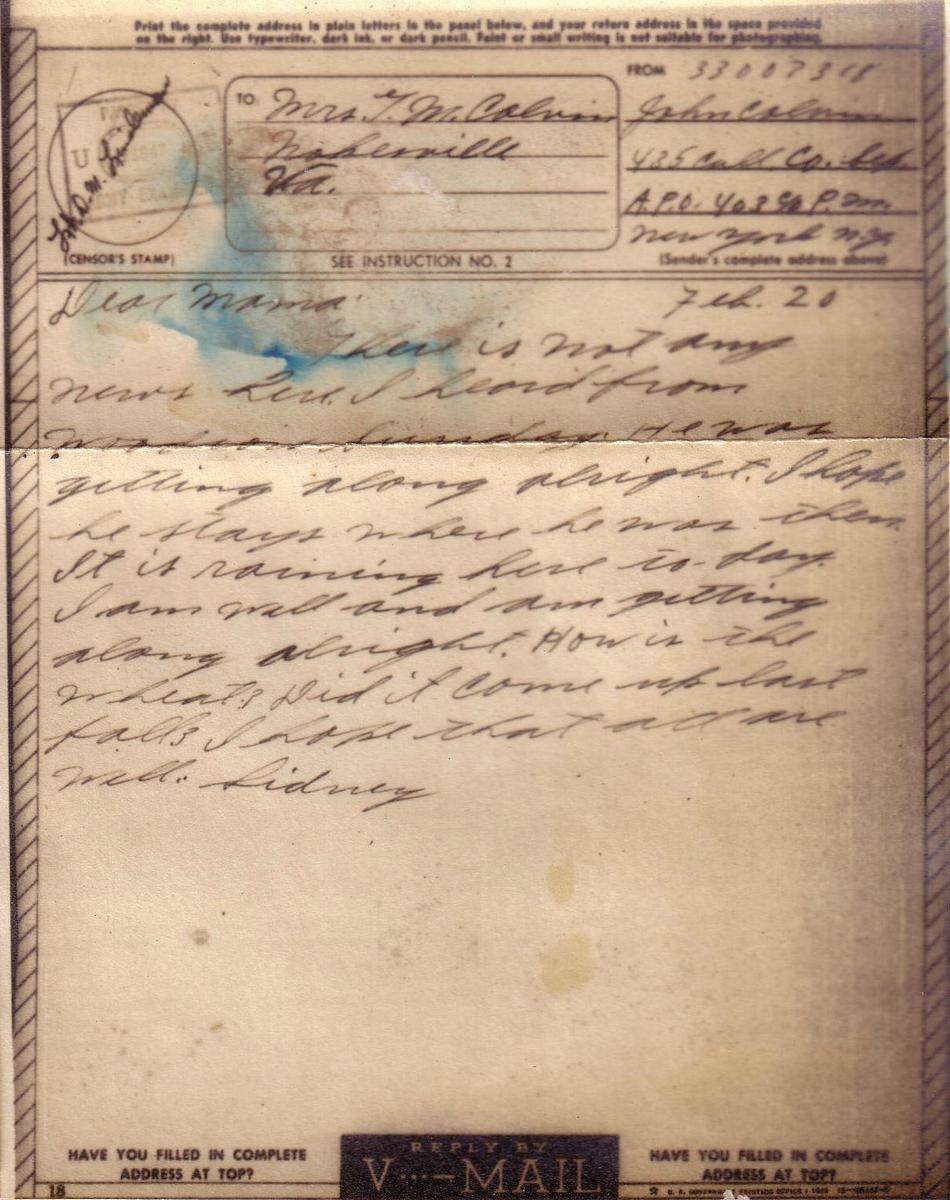 Print the complete address in plain letters in the panel below, and your return address in the space provided
on the right. Use typewriter, dark ink, or dark pencil. Faint or small writing is not suitable for photographing.
FROM 33007318
TO: Mrs. T. M. Colvin
John Colvin
Nokesville
435 Co.
Va.
A.P.O. 403 P.M.
New York N.Y.
(CENSOR'S STAMP)
SEE INSTRUCTION NO. 2
(Sender's complete address above)
Dear Mama Feb. 20
There is not any
news here. I heard from
Sunday. He was
getting along alright. I hope
he stays where he was then.
It is raining here to-day.
I am well and am getting
along alright. How is the
wheat? Did it come up last
fall? I hope that all are
well. Sidney
HAVE YOU FILLED IN COMPLETE
ADDRESS AT TOP?
REPLY BY
V···—MAIL
HAVE YOU FILLED IN COMPLETE
ADDRESS AT TOP?
18